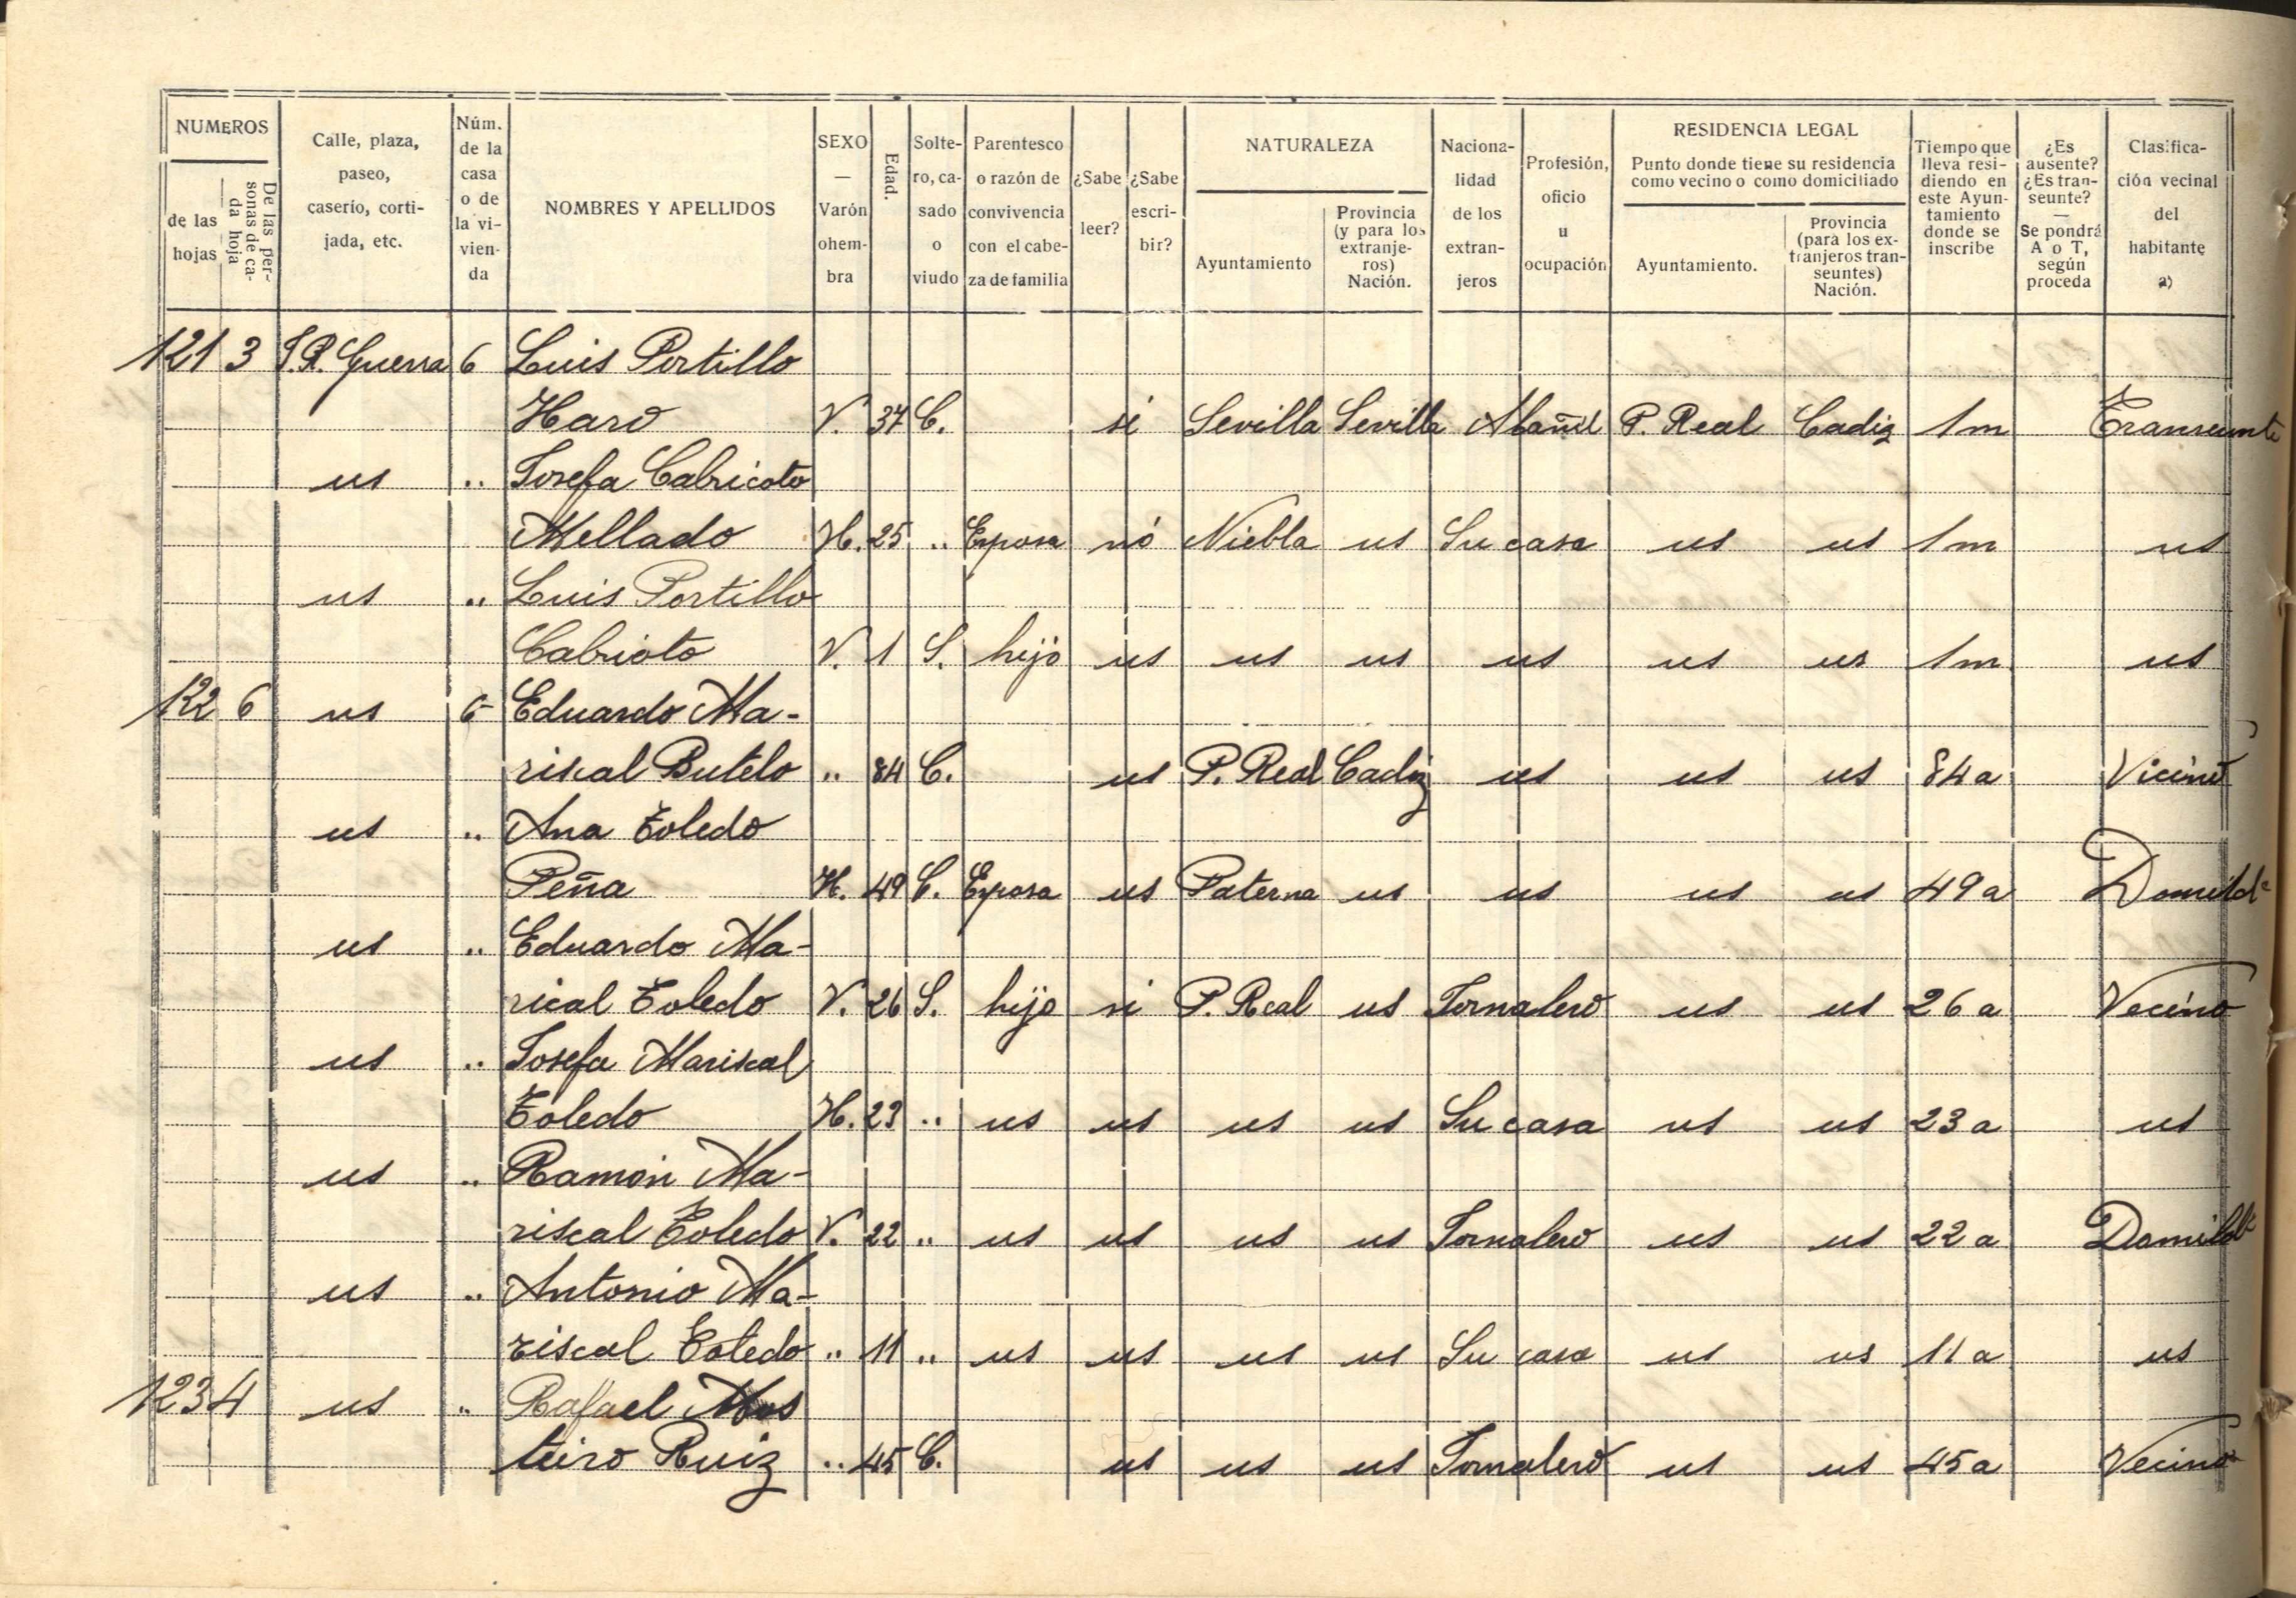 NUMEROS
de las hojas
De las personas de cada hoja
Calle, plaza, paseo, caserío, cortijada, etc.
Núm. de la casa o de la vivienda
NOMBRES Y APELLIDOS
SEXO — Varón o hembra
Edad.
Soltero, casado o viudo
Parentesco o razón de convivencia con el cabeza de familia
¿Sabe leer?
¿Sabe escribir?
NATURALEZA
Ayuntamiento
Provincia (y para los extranjeros) Nación.
Nacionalidad de los extranjeros
Profesión, oficio u ocupación
RESIDENCIA LEGAL
Punto donde tiene su residencia como vecino o como domiciliado
Ayuntamiento.
Provincia (para los extranjeros transeuntes) Nación.
Tiempo que lleva residiendo en este Ayuntamiento donde se inscribe
¿Es ausente? ¿Es transeunte? — Se pondrá A o T, según proceda
Clasificación vecinal del habitante a)
121 3 S.P. Guerra 6 Luis Portillo
Haro V. 37 C. si Sevilla Sevilla Albañil P. Real Cadiz 1 m Transeunte
us " Josefa Cabricoto
Mellado H. 25 " Esposa nó Niebla us Su casa us us 1 m us
us " Luis Portillo
Cabrioto V. 1 S. hijo us us us us us us 1 m us
122 6 us 6 Eduardo Ma-
riscal Butelo " 84 C. us P. Real Cadiz us us us 84 a Vicino
us " Ana Toledo
Peña H. 49 C. Esposa us Paterna us us us us 49 a Domild
us " Eduardo Ma-
rical Toledo V. 26 S. hijo si P. Real us Jornalero us us 26 a Vecino
us " Josefa Mariscal
Toledo H. 23 " us us us us Su casa us us 23 a us
us " Ramón Ma-
riscal Toledo V. 22 " us us us us Jornalero us us 22 a Domild
us " Antonio Ma-
riscal Toledo " 11 " us us us us Su casa us us 11 a us
123 4 us " Rafael Mos
teiro Ruiz " 45 C. us us us Jornalero us us 45 a Vecino